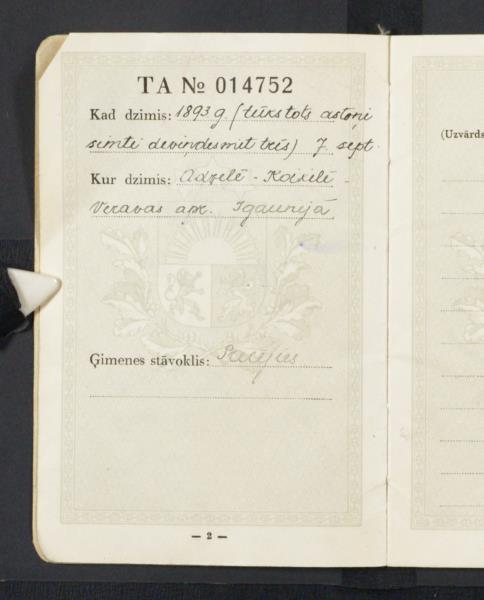 TA № 014752
Kad dzimis: 1893 g. (tūkstots astoņi
simti deviņdesmit trīs) 7. sept.
Kur dzimis: Adzelē - Koikilē -
Veravas apr. Igaunijā
Ģimenes stāvoklis:
— 2 —
(Uzvārds